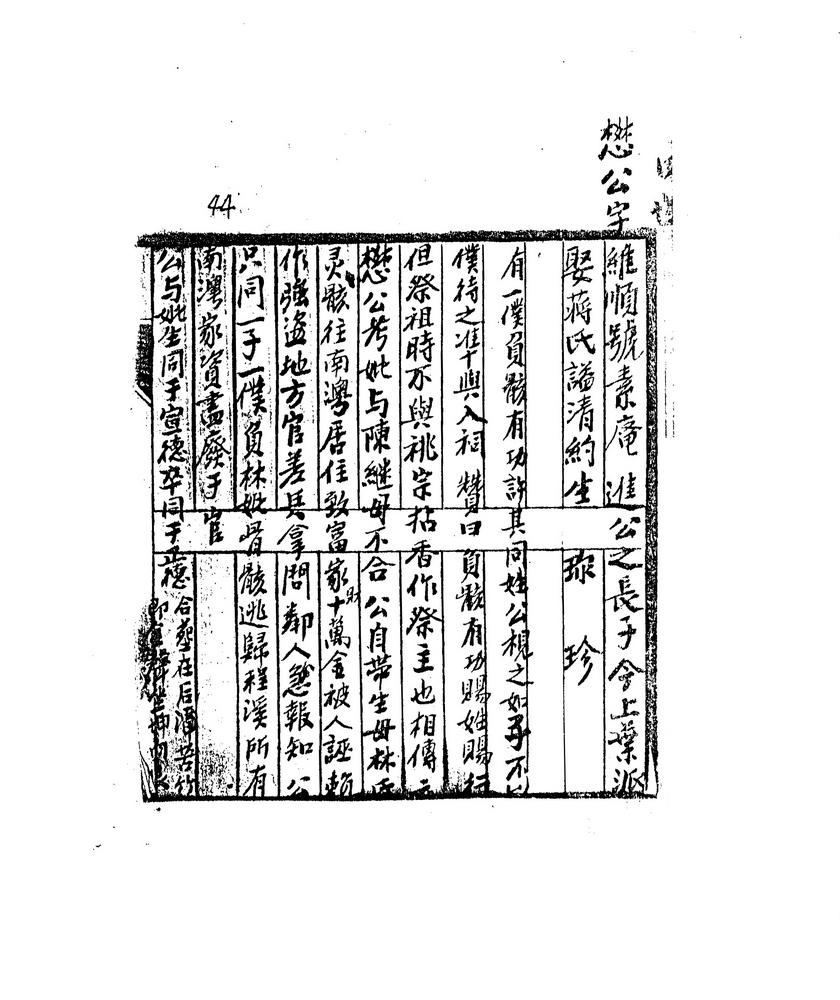 懋公字維順號素庵 進公之長子 今上葉派
娶蔣氏謚清約生 琮 珍
有一僕負骸有功許其同姓公視之如子不以
僕待之准與入祠 贊曰 負骸有功賜姓賜行
但祭祖時不與祧宗拈香作祭主也相傳云
懋公考妣与陳継母不合 公自帶生母林氏
灵骸往南灣居住致富家財十萬金被人誣賴
作強盜地方官差兵拿問鄰人憖報知 公
只同一子一僕負林妣骨骸逃歸程溪所有
南灣家資盡廢于官
公与妣生同于宣德卒同于正德 合葬在后潭苦竹
44